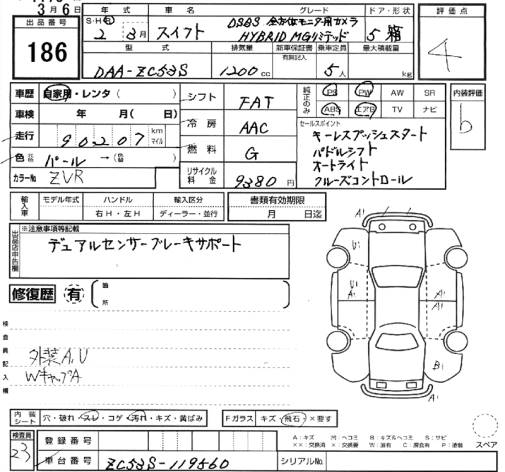 3月6日
出品番号 年式 車名 グレード ドア・形状 評価点
186
S・H・R 2年3月 スイフト DSBS 全方位モニター用カメラ HYBRID MGリミテッド 5 箱 4
型式 排気量 新車保証書 乗車定員 最大積載量
有無記入
DAA-ZC53S 1200cc 5人 kg
車歴 自家用・レンタ( )
シフト FAT
純正のみ PS PW AW SR
ABS エアB TV ナビ
内装評価
b
車検 年 月( 日)
冷房 AAC
セールスポイント
キーレスプッシュスタート
パドルシフト
オートライト
クルーズコントロール
走行 90207 km マイル
燃料 G
色 元色 パール →(色替 )
リサイクル料金 9380円
カラーNo ZVR
輸入車 モデル年式 ハンドル 輸入区分 書類有効期限
右H・左H ディーラー・並行 月 日迄
※注意事項等記載
出品店申告欄
デュアルセンサーブレーキサポート
修復歴 有 箇所
検査員記入欄
外装A,U
WキャップA
A1
U1
A1
A1
A1
B1
A1
内装シート 穴・破れ・スレ・コゲ・汚れ・キズ・黄ばみ
Fガラス キズ・飛石・×要す
検査員
23
登録番号
A:キズ M:ヘコミ B:キズ&ヘコミ S:サビ
××:交換済 ×:交換要 W:波有 C:腐食有 P:塗装
スペア
車台番号 ZC53S-119560
シリアルNo.